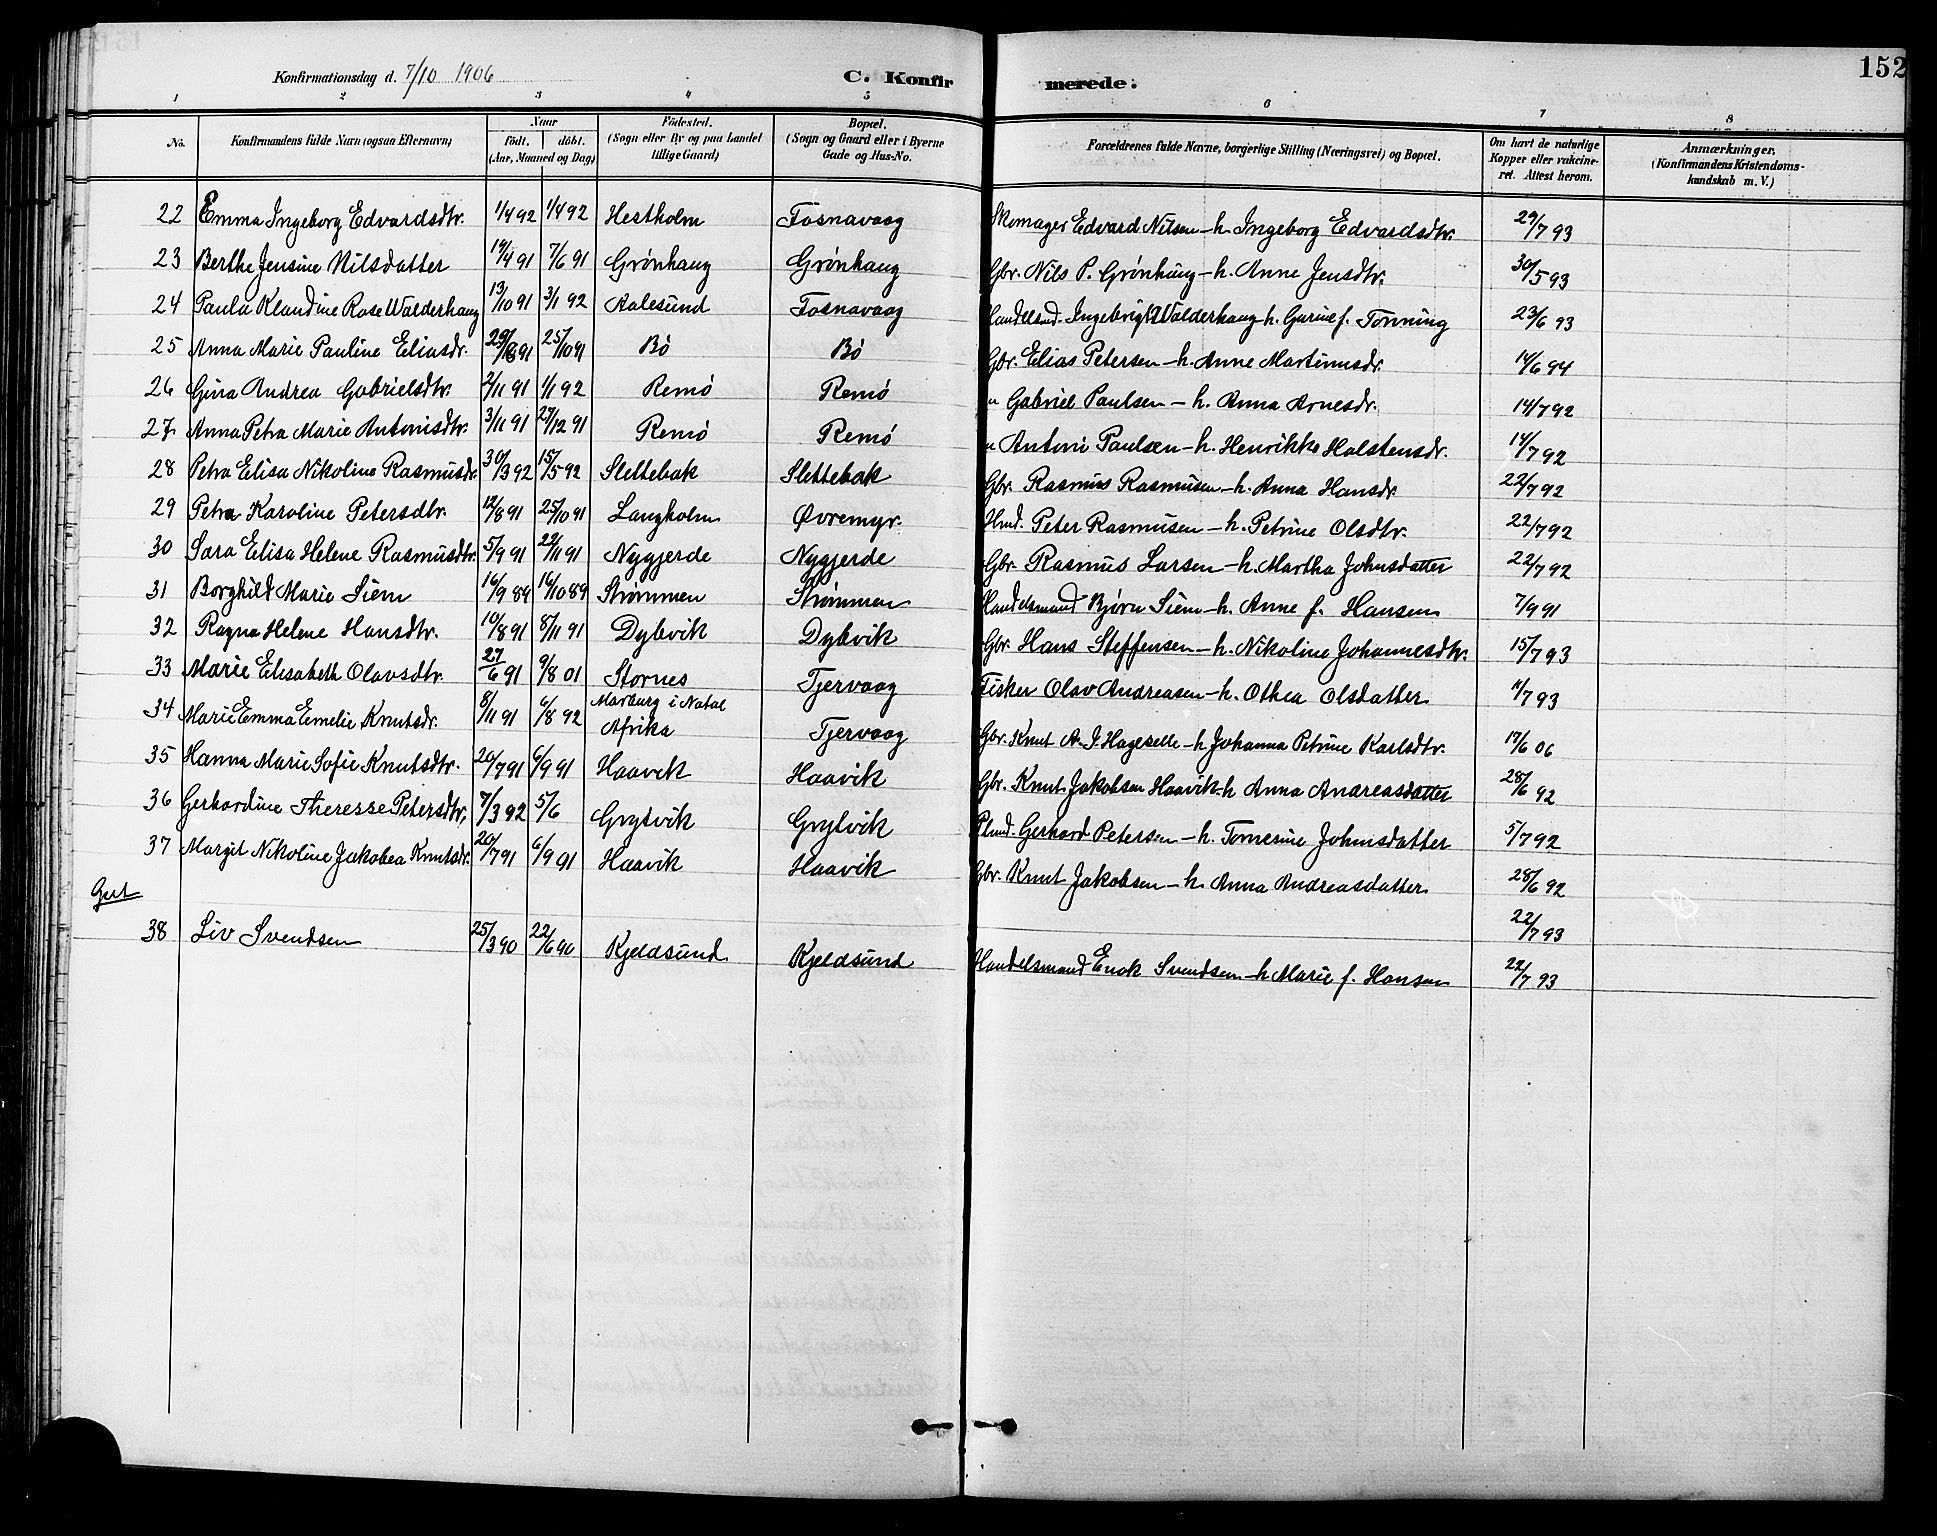 152
Konfirmationsdag d. 7/10 1906
C. Konfirmerede.
1 2 3 4 5 6 7 8
No.
Konfirmandens fulde Navn (ogsaa Efternavn)
Naar født. døbt. (Aar, Maaned og Dag)
Fødested. (Sogn eller By og paa Landet tillige Gaard)
Bopæl. (Sogn og Gaard eller i Byerne Gade og Hus-No.
Forældrenes fulde Navne, borgerlige Stilling (Næringsvei) og Bopæl.
Om havt de naturlige Kopper eller vakcineret. Attest herom.
Anmærkninger. (Konfirmandens Kristendomskundskab m. V.)
22 Emma Ingeborg Edvardsdtr. 1/4 92 1/4 92 Hestholm Fosnavaag Skomager Edvard Nilsen - h. Ingeborg Edvardsdtr. 29/7 93
23 Berthe Jensine Nilsdatter 14/4 91 7/6 91 Grønhaug Grønhaug Gbr. Nils P. Grønhaug - h. Anne Jensdtr. 30/5 93
24 Paula Klaudine Rose Walderhaug 13/10 91 3/1 92 Aalesund Fosnavaag Handelsmd. Ingebrigt Walderhaug h. Gurine f. Tønning 23/6 93
25 Anna Marie Pauline Eliasdr. 91 25/10 91 Bø Bø Gbr. Elias Petersen - h. Anne Martinusdr. 14/6 94
26 Gina Andrea Gabrielsdtr. 2/11 91 1/1 92 Remø Remø " Gabriel Paulsen - h. Anna Arnesdr. 14/7 92
27 Anna Petra Marie Antonisdtr. 3/11 91 27/12 91 Remø Remø " Antoni Paulsen - h. Henrikke Holstensdr. 14/7 92
28 Petra Elisa Nikoline Rasmusdr. 30/3 92 15/5 92 Slettebak Slettebak Gbr. Rasmus Rasmusen - h. Anna Hansdr. 22/7 92
29 Petra Karoline Petersdtr. 12/8 91 25/10 91 Langholm Øvremyr. Hmd. Peter Rasmusen - h. Petrine Olsdtr. 22/7 92
30 Sara Elisa Helene Rasmusdtr. 5/9 91 22/11 91 Nygjerde Nygjerde Gbr. Rasmus Larsen - h. Martha Johnsdatter 22/7 92
31 Borghild Marie Siem 16/9 89 16/10 89 Strømmen Strømmen Handelsmand Bjørn Siem - h. Anne f. Hansen 7/9 91
32 Ragna Helene Hansdtr. 10/8 91 8/11 91 Dybvik Dybvik Gbr. Hans Steffensen - h. Nikoline Johannesdtr. 15/7 93
33 Marie Elisabeth Olavsdtr. 27/6 91 9/8 01 Stornes Tjervaag Fisker Olav Andreasen - h. Othea Olsdatter 11/7 93
34 Marie Emma Emelie Knutsdr. 8/11 91 6/8 92 Marburg i Natal Afrika Tjervaag Gbr. Knut A. J. Hageselle - h Johanna Petrine Karlsdtr. 17/6 06
35 Hanna Marie Sofie Knutsdtr. 20/7 91 6/9 91 Haavik Haavik Gbr. Knut Jakobsen Haavik - h Anna Andreasdatter 28/6 92
36 Gerhardine Theresse Petersdtr, 7/3 92 5/6 Grytvik Grytvik Plmd. Gerhard Petersen - h. Tomesine Johnsdatter 5/7 92
37 Margit Nikoline Jakobea Knutsdr. 20/7 91 6/9 91 Haavik Haavik Gbr. Knut Jakobsen - h. Anna Andreasdatter 28/6 92
22/7 93
38 Liv Svendsen 25/3 90 22/6 90 Kjeldsund Kjeldsund Handelsmand Enok Svendsen - h Marie f. Hansen 22/7 93